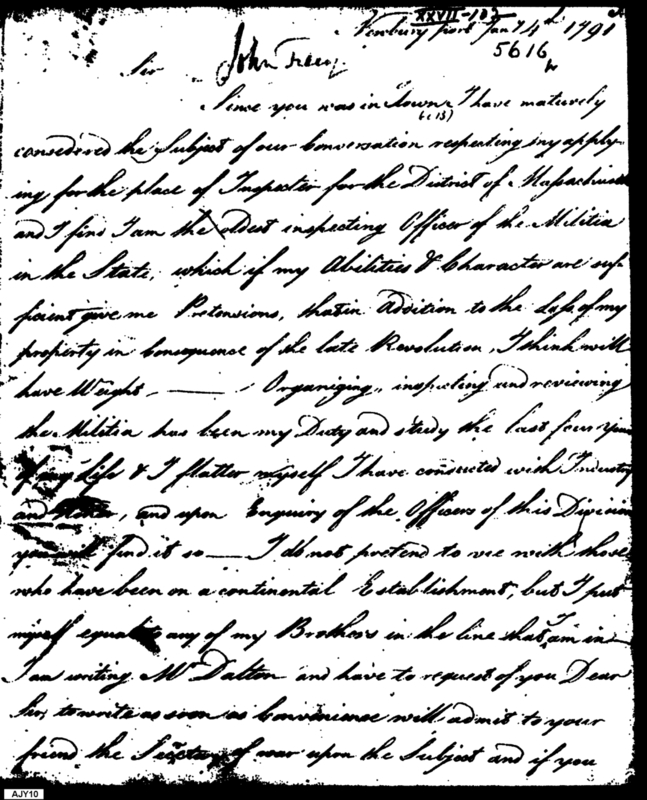 XXVII-102
Newbury port Jany 4th 1791
5616
Sir John Tracy
Since you was in Town I have maturely
considered the Subject of our Conversation respecting my apply-
ing for the place of Inspecter for the District of Massachusetts
and I find I am the oldest inspecting Officer of the Militia
in the State, which if my Abilities & Character are suf-
ficient give me Pretensions, that in Addition to the Loss of my
property in Consequence of the late Revolution, I think will
have Weight — Organizing, inspecting and reviewing
the Militia has been my Duty and study the last four years
of my Life & I flatter myself I have conducted with Industry
and, and upon Enquiry of the Officers of this Division
you will find it so — I do not pretend to vie with those
who have been on a continental Establishment, but I put
myself equal to any of my Brothers in the line that I am in
I am writing Mr Dalton and have to request of you Dear
Sir, to write as soon as Convenience will admit to your
friend the Secretary of war upon the Subject and if you
AJY10